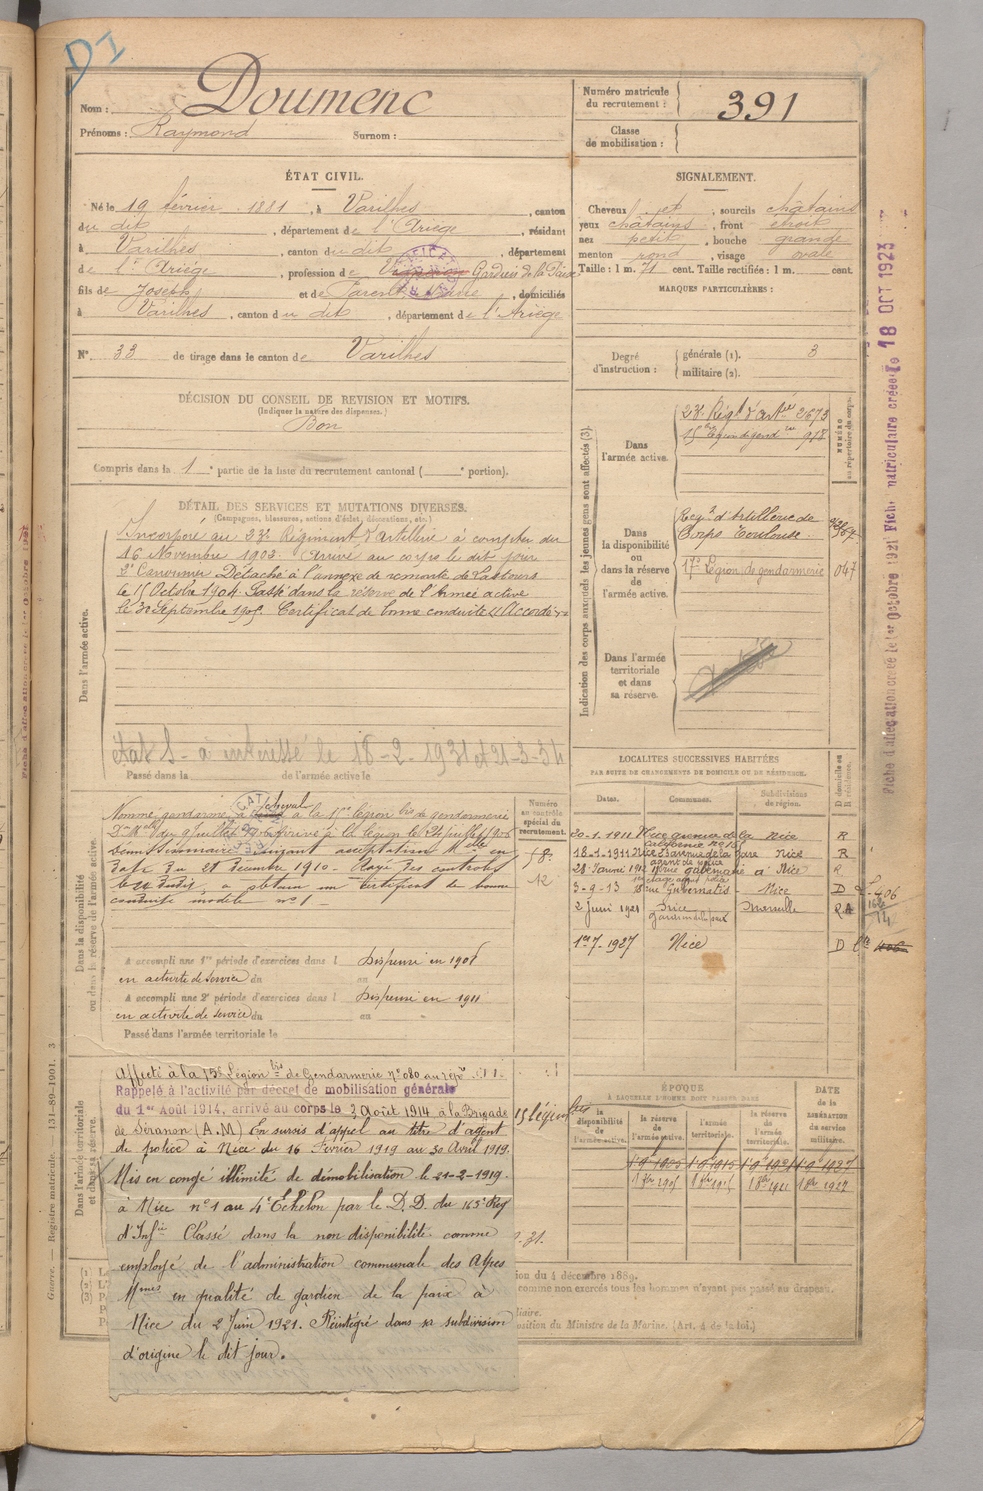 DI
Nom : Doumenc
Prénoms : Raymond Surnom :
Numéro matricule du recrutement : 391
Classe de mobilisation :
ÉTAT CIVIL.
Né le 19 février 1881, à Varilhes, canton
du dit, département de l'Ariège, résidant
à Varilhes, canton du dit, département
de l'Ariège, profession de Gardien de la Paix
fils de Joseph et de Parent, domiciliés
à Varilhes, canton du dit, département de l'Ariège
N° 33 de tirage dans le canton de Varilhes
DÉCISION DU CONSEIL DE REVISION ET MOTIFS.
(Indiquer la nature des dispenses.)
Bon
Compris dans la 1e partie de la liste du recrutement cantonal ( portion).
SIGNALEMENT.
Cheveux et, sourcils châtains
yeux châtains, front étroit
nez petit, bouche grande
menton rond, visage ovale
Taille : 1 m. 71 cent. Taille rectifiée : 1 m. cent.
MARQUES PARTICULIÈRES :
Degré d'instruction : générale (1). 3
militaire (2).
DÉTAIL DES SERVICES ET MUTATIONS DIVERSES.
(Campagnes, blessures, actions d'éclat, décorations, etc.)
Dans l'armée active.
Incorporé au 23e Régiment d'artillerie à compter du
16 Novembre 1902. Arrivé au corps le dit jour
2e Canonnier Détaché à l'annexe de remonte de Lastours
le 15 Octobre 1904. Passé dans la réserve de l'Armée active
le 30 Septembre 1905. Certificat de bonne conduite Accordé
état S - à intéressé le 18-2-1931 et 21-3-34
Passé dans la de l'armée active le
Indication des corps auxquels les jeunes gens sont affectés (3).
NUMÉRO au répertoire du corps.
Dans l'armée active.
23e Régt d'Artie 2673
15e bis légion de gendie 918
Dans la disponibilité ou dans la réserve de l'armée active.
Regt d'Artillerie de
Corps Toulouse.
17e Légion de gendarmerie 047
Dans l'armée territoriale et dans sa réserve.
LOCALITÉS SUCCESSIVES HABITÉES
PAR SUITE DE CHANGEMENTS DE DOMICILE OU DE RÉSIDENCE.
Dates. Communes. Subdivisions de région. D domicile ou R résidence.
20-1-1911 Nice avenue de la Californie n° 15 Nice R
18-1-1911 Nice Banque de la gare Nice R
agent de police
28 Janvier 1912 Nice R
3-9-13 18 rue Gubernatis Nice D
2 Juin 1921 Nice Marseille
1er 7. 1927 Nice D
Dans la disponibilité ou dans la réserve de l'armée active.
Numéro au contrôle spécial du recrutement.
Nommé gendarme à cheval à la légion de gendarmerie
Arrivé à la légion le 24 juillet 1906
Démissionnaire suivant acceptation en
date du 21 Décembre 1910. Rayé des contrôles
le 24 dudit, a obtenu un certificat de bonne
conduite modèle n° 1
A accompli une 1re période d'exercices dans l Dispensé en 1908
en activité de service du au
A accompli une 2e période d'exercices dans l Dispensé en 1911
en activité de service du au
Passé dans l'armée territoriale le
Dans l'armée territoriale et dans sa réserve.
Affecté à la 15e Légion bis de Gendarmerie n° 080 au
Rappelé à l'activité par décret de mobilisation générale
du 1er Août 1914, arrivé au corps le 3 Août 1914 à la Brigade
de Séranon (A.M.) En sursis d'appel au titre d'agent
de police à Nice du 16 Février 1919 au 30 Avril 1919.
Mis en congé illimité de démobilisation le 21-2-1919.
à Nice n° 1 au 4e Échelon par le D.D. du 165e Reg
d'Infie Classé dans la non disponibilité comme
employé de l'administration communale des Alpes
Mmes en qualité de gardien de la paix à
Nice du 2 Juin 1921. Réintégré dans sa subdivision
d'origine le dit jour.
ÉPOQUE
À LAQUELLE L'HOMME DOIT PASSER DANS
la disponibilité de l'armée active. la réserve de l'armée active. l'armée territoriale. la réserve de l'armée territoriale.
DATE de la LIBÉRATION du service militaire.
1 9bre 1905 1 9 1915 1 9 1921 1 9 1927
ion du 4 décembre 1889.
comme non exercés tous les hommes n'ayant pas passé au drapeau.
osition du Ministre de la Marine. (Art. 4 de la loi.)
Guerre. — Registre matricule. — 131-89-1901. 3
Fiche d'affectation créée le 1er Octobre 1921 Fiche matriculaire créée le 18 OCT 1923